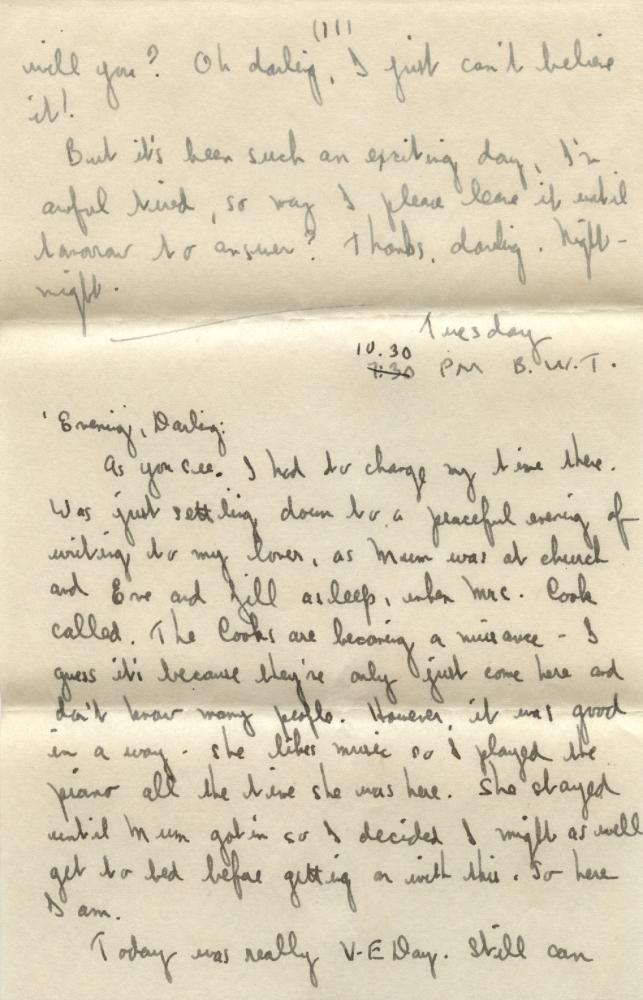 (111
will you? Oh darling, I just can't believe
it!
But it's been such an exciting day, I'm
awful tired, so may I please leave it until
tomorrow to answer? Thanks, darling. Night-
night.
Tuesday
10.30
7.30 PM B.W.T.
'Evening, Darling:
As you see. I had to change my time there.
Was just settling down to a peaceful evening of
writing to my lover, as Mum was at church
and Eve and Jill asleep, when Mrs. Cook
called. The Cooks are becoming a nuisance - I
guess it's because they're only just come here and
don't know many people. However, it was good
in a way - she likes music so I played the
piano all the time she was here. She stayed
until Mum got in so I decided I might as well
get to bed before getting on with this. So here
I am.
Today was really V-E Day. Still can